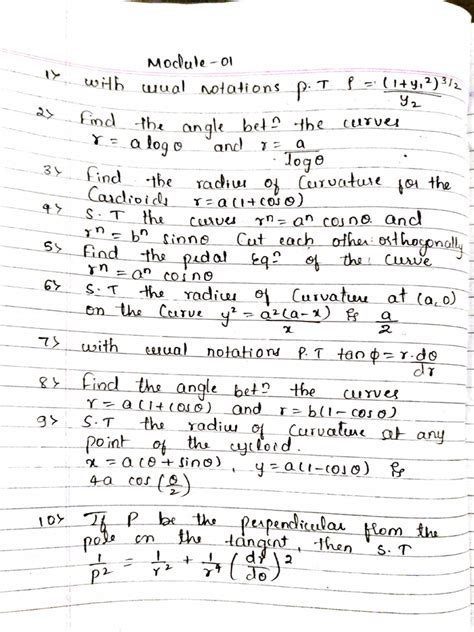 Module-01
1> with usual notations p.T ρ = (1+y₁²)^3/2 / y₂
2> Find the angle betⁿ the curves
r = a logθ and r = a / logθ
3> Find the radius of Curvature for the
Cardioid r = a(1+cosθ)
4> S.T the curves rⁿ = aⁿ cosnθ and
rⁿ = bⁿ sinnθ Cut each other orthogonally
5> Find the pedal Eqⁿ of the curve
rⁿ = aⁿ cosnθ
6> S.T the radius of Curvature at (a,0)
on the Curve y² = a²(a-x) / x is a / 2
7> with usual notations P.T tanφ = r.dθ / dr
8> Find the angle betⁿ the curves
r = a(1+cosθ) and r = b(1-cosθ)
9> S.T the radius of Curvature at any
point of the cycloid.
x = a(θ+sinθ), y = a(1-cosθ) is
4a cos(θ/2)
10> If P be the perpendicular from the
pole on the tangent, then S.T
1/p² = 1/r² + 1/r⁴ (dr/dθ)²